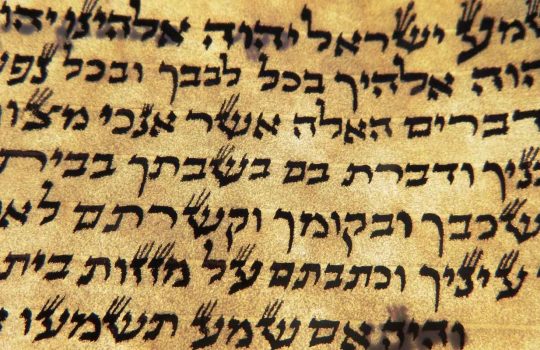 שמע ישראל יהוה אלהינו יהו
הוה אלהיך בכל לבבך ובכל נפש
דברים האלה אשר אנכי מצו
בניך ודברת בם בשבתך בבית
שכבך ובקומך וקשרתם לאו
עיניך וכתבתם על מזזות בית
והיה אם שמע תשמעו